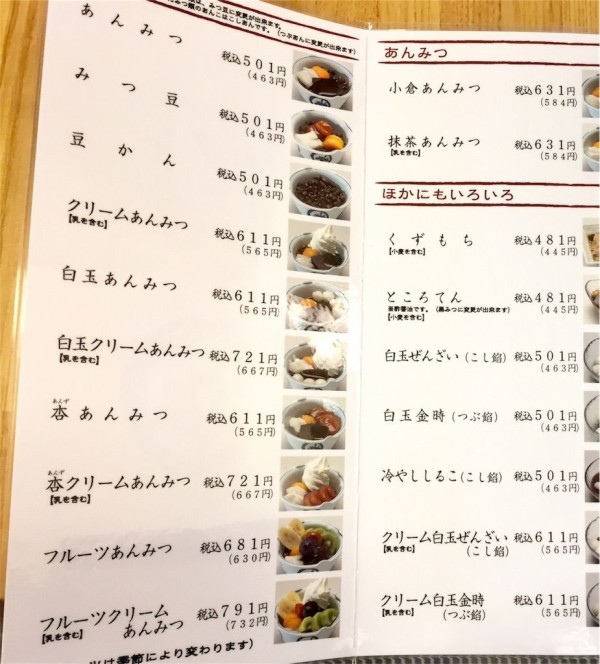 は、みつ豆に変更が出来ます。
みつ類のあんこはこしあんです。（つぶあんに変更が出来ます）
あんみつ
税込501円
（463円）
みつ豆
税込501円
（463円）
豆かん
税込501円
（463円）
クリームあんみつ
【乳を含む】
税込611円
（565円）
白玉あんみつ
税込611円
（565円）
白玉クリームあんみつ
【乳を含む】
税込721円
（667円）
あんず
杏あんみつ
税込611円
（565円）
あんず
杏クリームあんみつ
【乳を含む】
税込721円
（667円）
フルーツあんみつ
税込681円
（630円）
フルーツクリーム
あんみつ
【乳を含む】
税込791円
（732円）
ツは季節により変わります）
あんみつ
小倉あんみつ
税込631円
（584円）
抹茶あんみつ
【乳を含む】
税込631円
（584円）
ほかにもいろいろ
くずもち
【小麦を含む】
税込481円
（445円）
ところてん
亜酢醤油です。（黒みつに変更が出来ます）
【小麦を含む】
税込481円
（445円）
白玉ぜんざい（こし餡）
税込501円
（463円）
白玉金時（つぶ餡）
税込501円
（463円）
冷やししるこ（こし餡）
税込501円
（463円）
クリーム白玉ぜんざい
【乳を含む】
（こし餡）
税込611円
（565円）
クリーム白玉金時
【乳を含む】
（つぶ餡）
税込611円
（565円）